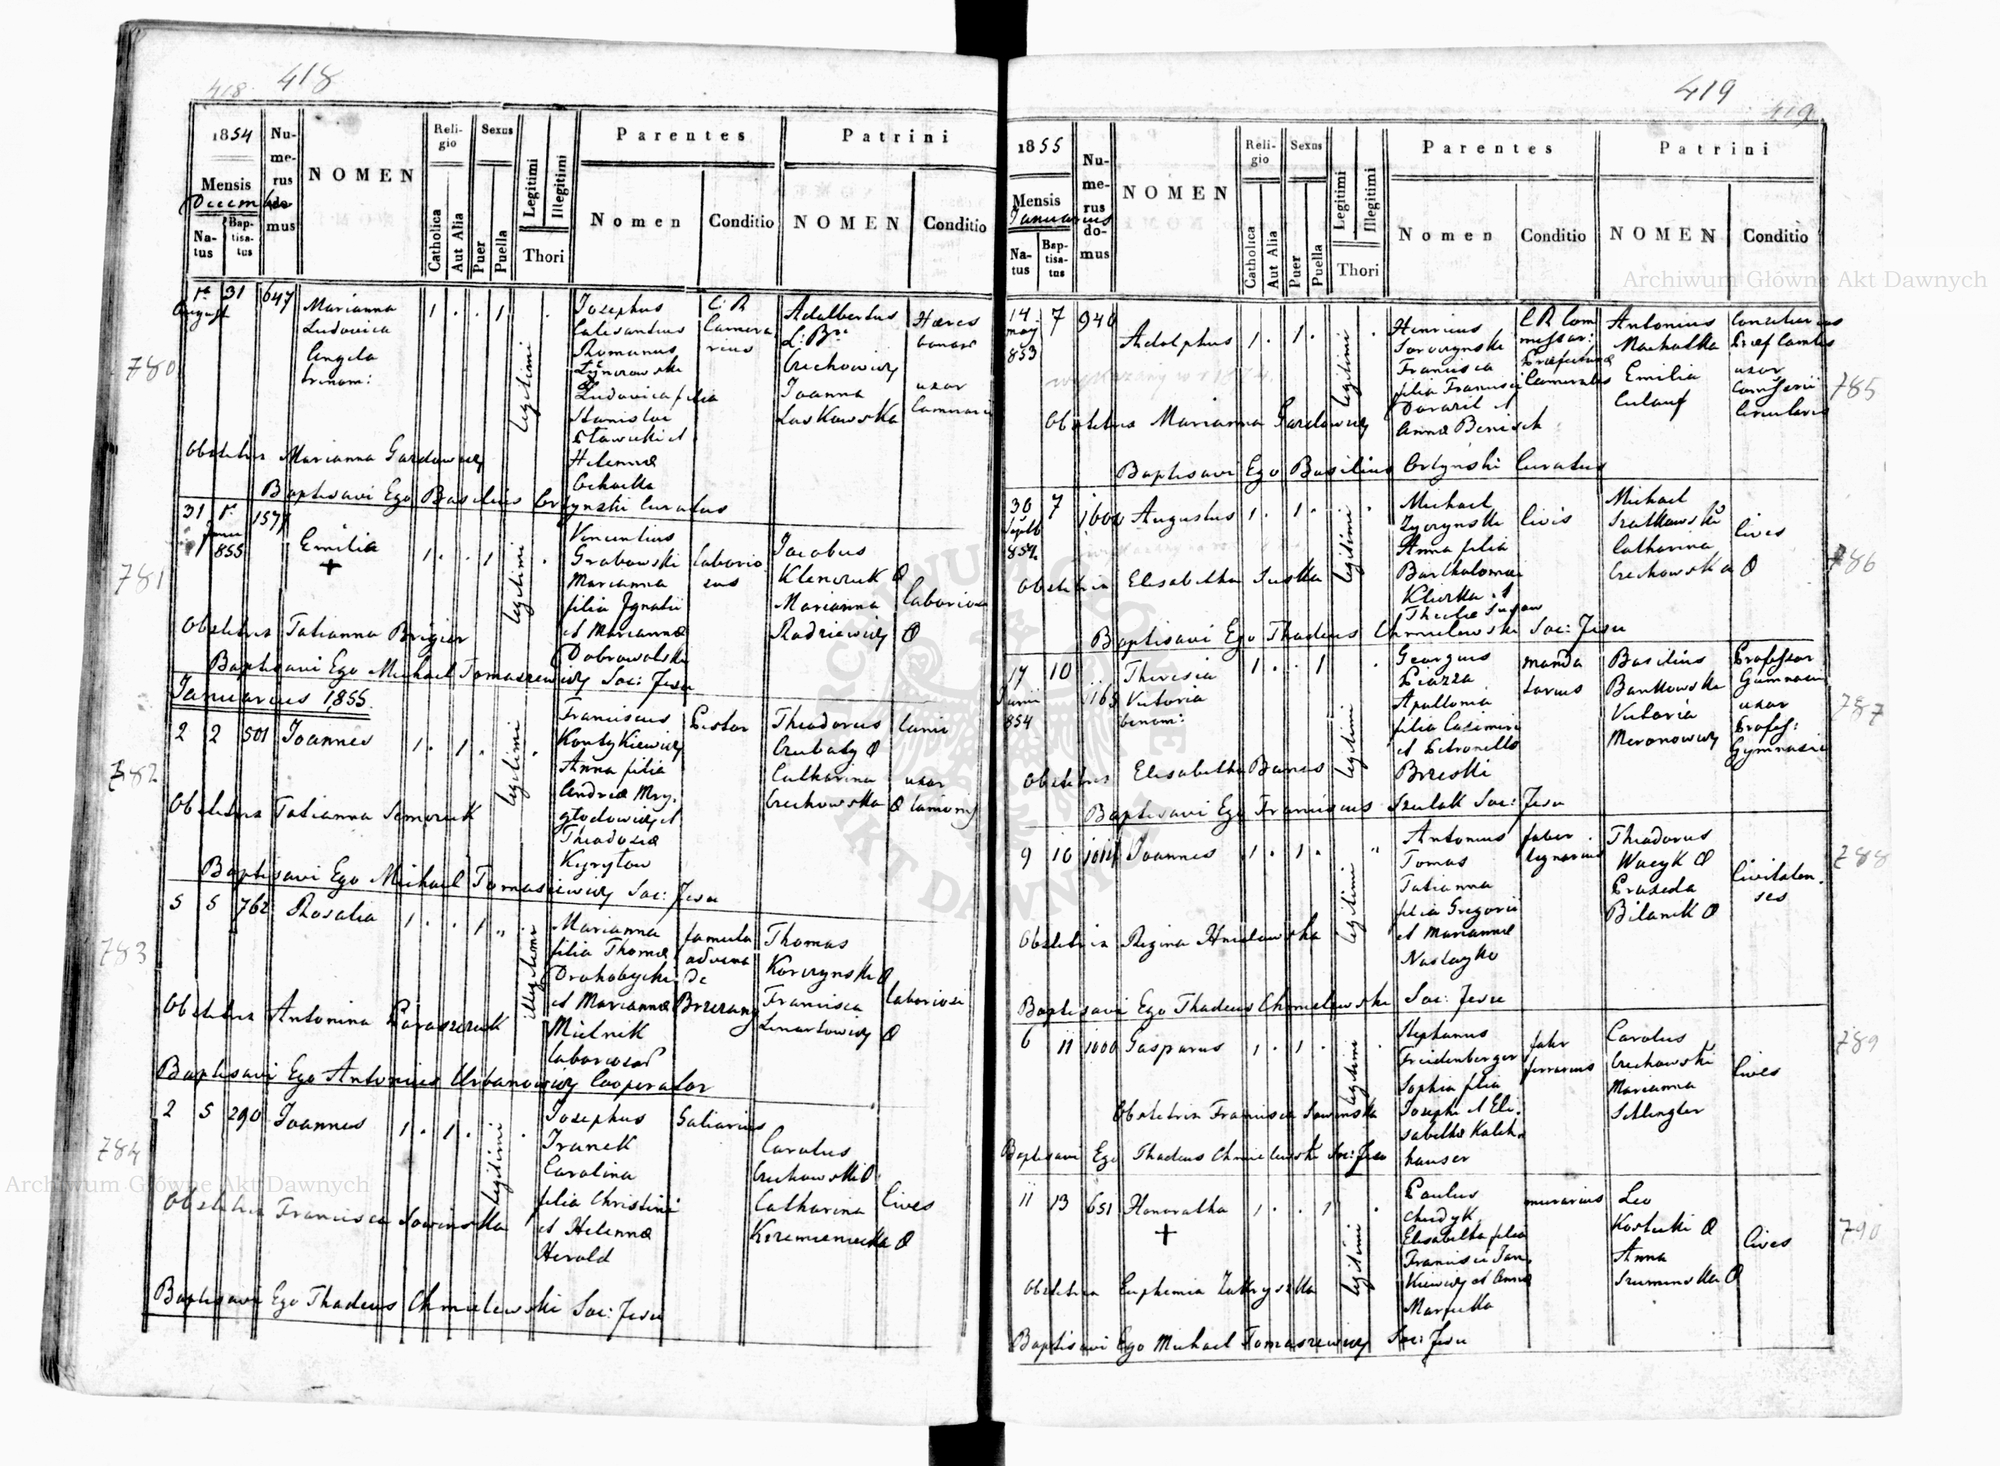 418
418
1854
Mensis
Decembris
Na-
tus
Bap-
tisa-
tus
Nu-
me-
rus
do-
mus
NOMEN
Reli-
gio
Catholica
Aut Alia
Sexus
Puer
Puella
Legitimi
Illegitimi
Thori
Parentes
Nomen
Conditio
Patrini
NOMEN
Conditio
780
1a August
31
647
Marianna
Ludovica
Angela
trinom:
1 . . 1 .
legitimi
Josephus
Calasantius
Romanus
Ludovica filia
Stanislai
et
Helenna
C: R
Camera
rius
Adalbertus
L: Br:
Czechowicz
Joanna
Laskowska
Haeres
bonor
uxor
Camerarii
Obstetrix Marianna Gardowicz
Baptisavi Ego Basilius Ortynski Curatus
781
31
1a
Janu
855
157
Emilia
+
1 . . 1 .
legitimi
Vincentius
Grabowski
Marianna
filia Ignatii
et Mariannae
Dobrowolska
laborio
sus
Jacobus
Klemczuk
Marianna
Radziewicz
laboriosi
Obstetrix Tatianna Brygier
Baptisavi Ego Michael Tomaszewicz Soc: Jesu
Januarius 1855
782
2
2
501
Joannes
1 . 1 . .
legitimi
Franciscus
Kontykiewicz
Anna filia
Andreae Mry.
głodowicz et
Theodosiae
Kyryłow
Pistor
Theodorus
Czubaty
Catharina
Czechowska
lanii
uxor
lanionis
Obstetrix Tatianna Semczuk
Baptisavi Ego Michael Tomaszewicz Soc: Jesu
783
5
5
762
Rosalia
1 . . 1 .
illegitimi
Marianna
filia Thomae
Drohobycki
et Mariannae
Mielnik
famula
advena
de
Brzezany
Thomas
Korczynski
Francisca
Linartowicz
laboriosi
Obstetrix Antonina Paraszczuk
Baptisavi Ego Antonius Urbanowicz Cooperator
784
2
5
290
Joannes
1 . 1 . .
legitimi
Josephus
Franek
Carolina
filia Christini
et Helennae
Herold
Saliarius
Carolus
Czechowski
Catharina
Krzemieniecka
Cives
Obstetrix Francisca Sowinska
Baptisavi Ego Thadeus Chmielewski Soc: Jesu
419
419
1855
Mensis
Januarius
Na-
tus
Bap-
tisa-
tus
Nu-
me-
rus
do-
mus
NOMEN
Reli-
gio
Catholica
Aut Alia
Sexus
Puer
Puella
Legitimi
Illegitimi
Thori
Parentes
Nomen
Conditio
Patrini
NOMEN
Conditio
785
14
may
853
7
940
Adolphus
1 . 1 . .
legitimi
Henricus
Francisca
filia Francisci
et
Anna Benisch
C R Com
missar:
Praefecturae
Cameralis
Antonius
Machalka
Emilia
Consiliarius
Praef Camlis
uxor
Comisarii
Circularis
Obstetrix Marianna Gardowicz
Baptisavi Ego Basilius Ortynski Curatus
786
30
Septb
854
7
1600
Augustus
1 . 1 . .
legitimi
Michael
Zyczynski
Anna filia
Bartholomaei
et
Civis
Michael
Szatkowski
Catharina
Czechowska
Cives
Obstetrix Elisabetha Suska
Baptisavi Ego Thadeus Chmielewski Soc: Jesu
787
17
Junii
854
10
1168
Theresia
Victoria
binom:
1 . . 1 .
legitimi
Georgius
Piazza
Apollonia
filia Casimiri
et Petronella
Brzeski
manda
tarius
Basilius
Bankowski
Victoria
Meronowicz
Professor
Gymnasii
uxor
Profess:
Gymnasii
Obstetrix Elisabetha Banas
Baptisavi Ego Franciscus Szulak Soc: Jesu
788
9
10
Joannes
1 . 1 . "
legitimi
Antonius
Tomas
Tatianna
filia Gregorii
et Mariannae
Naslazko
faber
lignarius
Theodorus
Wacyk
Praxeda
Bilanik
Civitaten-
ses
Obstetrix Regina Hnidowska
Baptisavi Ego Thadeus Chmielewski Soc: Jesu
789
6
11
1000
Gasparus
1 . 1 . .
legitimi
Stephanus
Freidenberger
Sophia filia
Josephi et Eli-
sabetha Kalch-
hauser
faber
ferrarius
Carolus
Czechowski
Marianna
Settlingler
Cives
Obstetrix Francisca Sowinska
Baptisavi Ego Thadeus Chmielewski Soc: Jesu
790
11
13
651
Honoratha
+
1 . . 1 .
legitimi
Paulus
Chudyk
Elisabetha filia
Francisci Jan-
kiewicz et Annae
murarius
Leo
Kostecki
Anna
Szuminska
Cives
Obstetrix Euphemia
Baptisavi Ego Michael Tomaszewicz Soc: Jesu
Archiwum Główne Akt Dawnych
Archiwum Główne Akt Dawnych
ARCHIWUM GŁÓWNE
AKT DAWNYCH